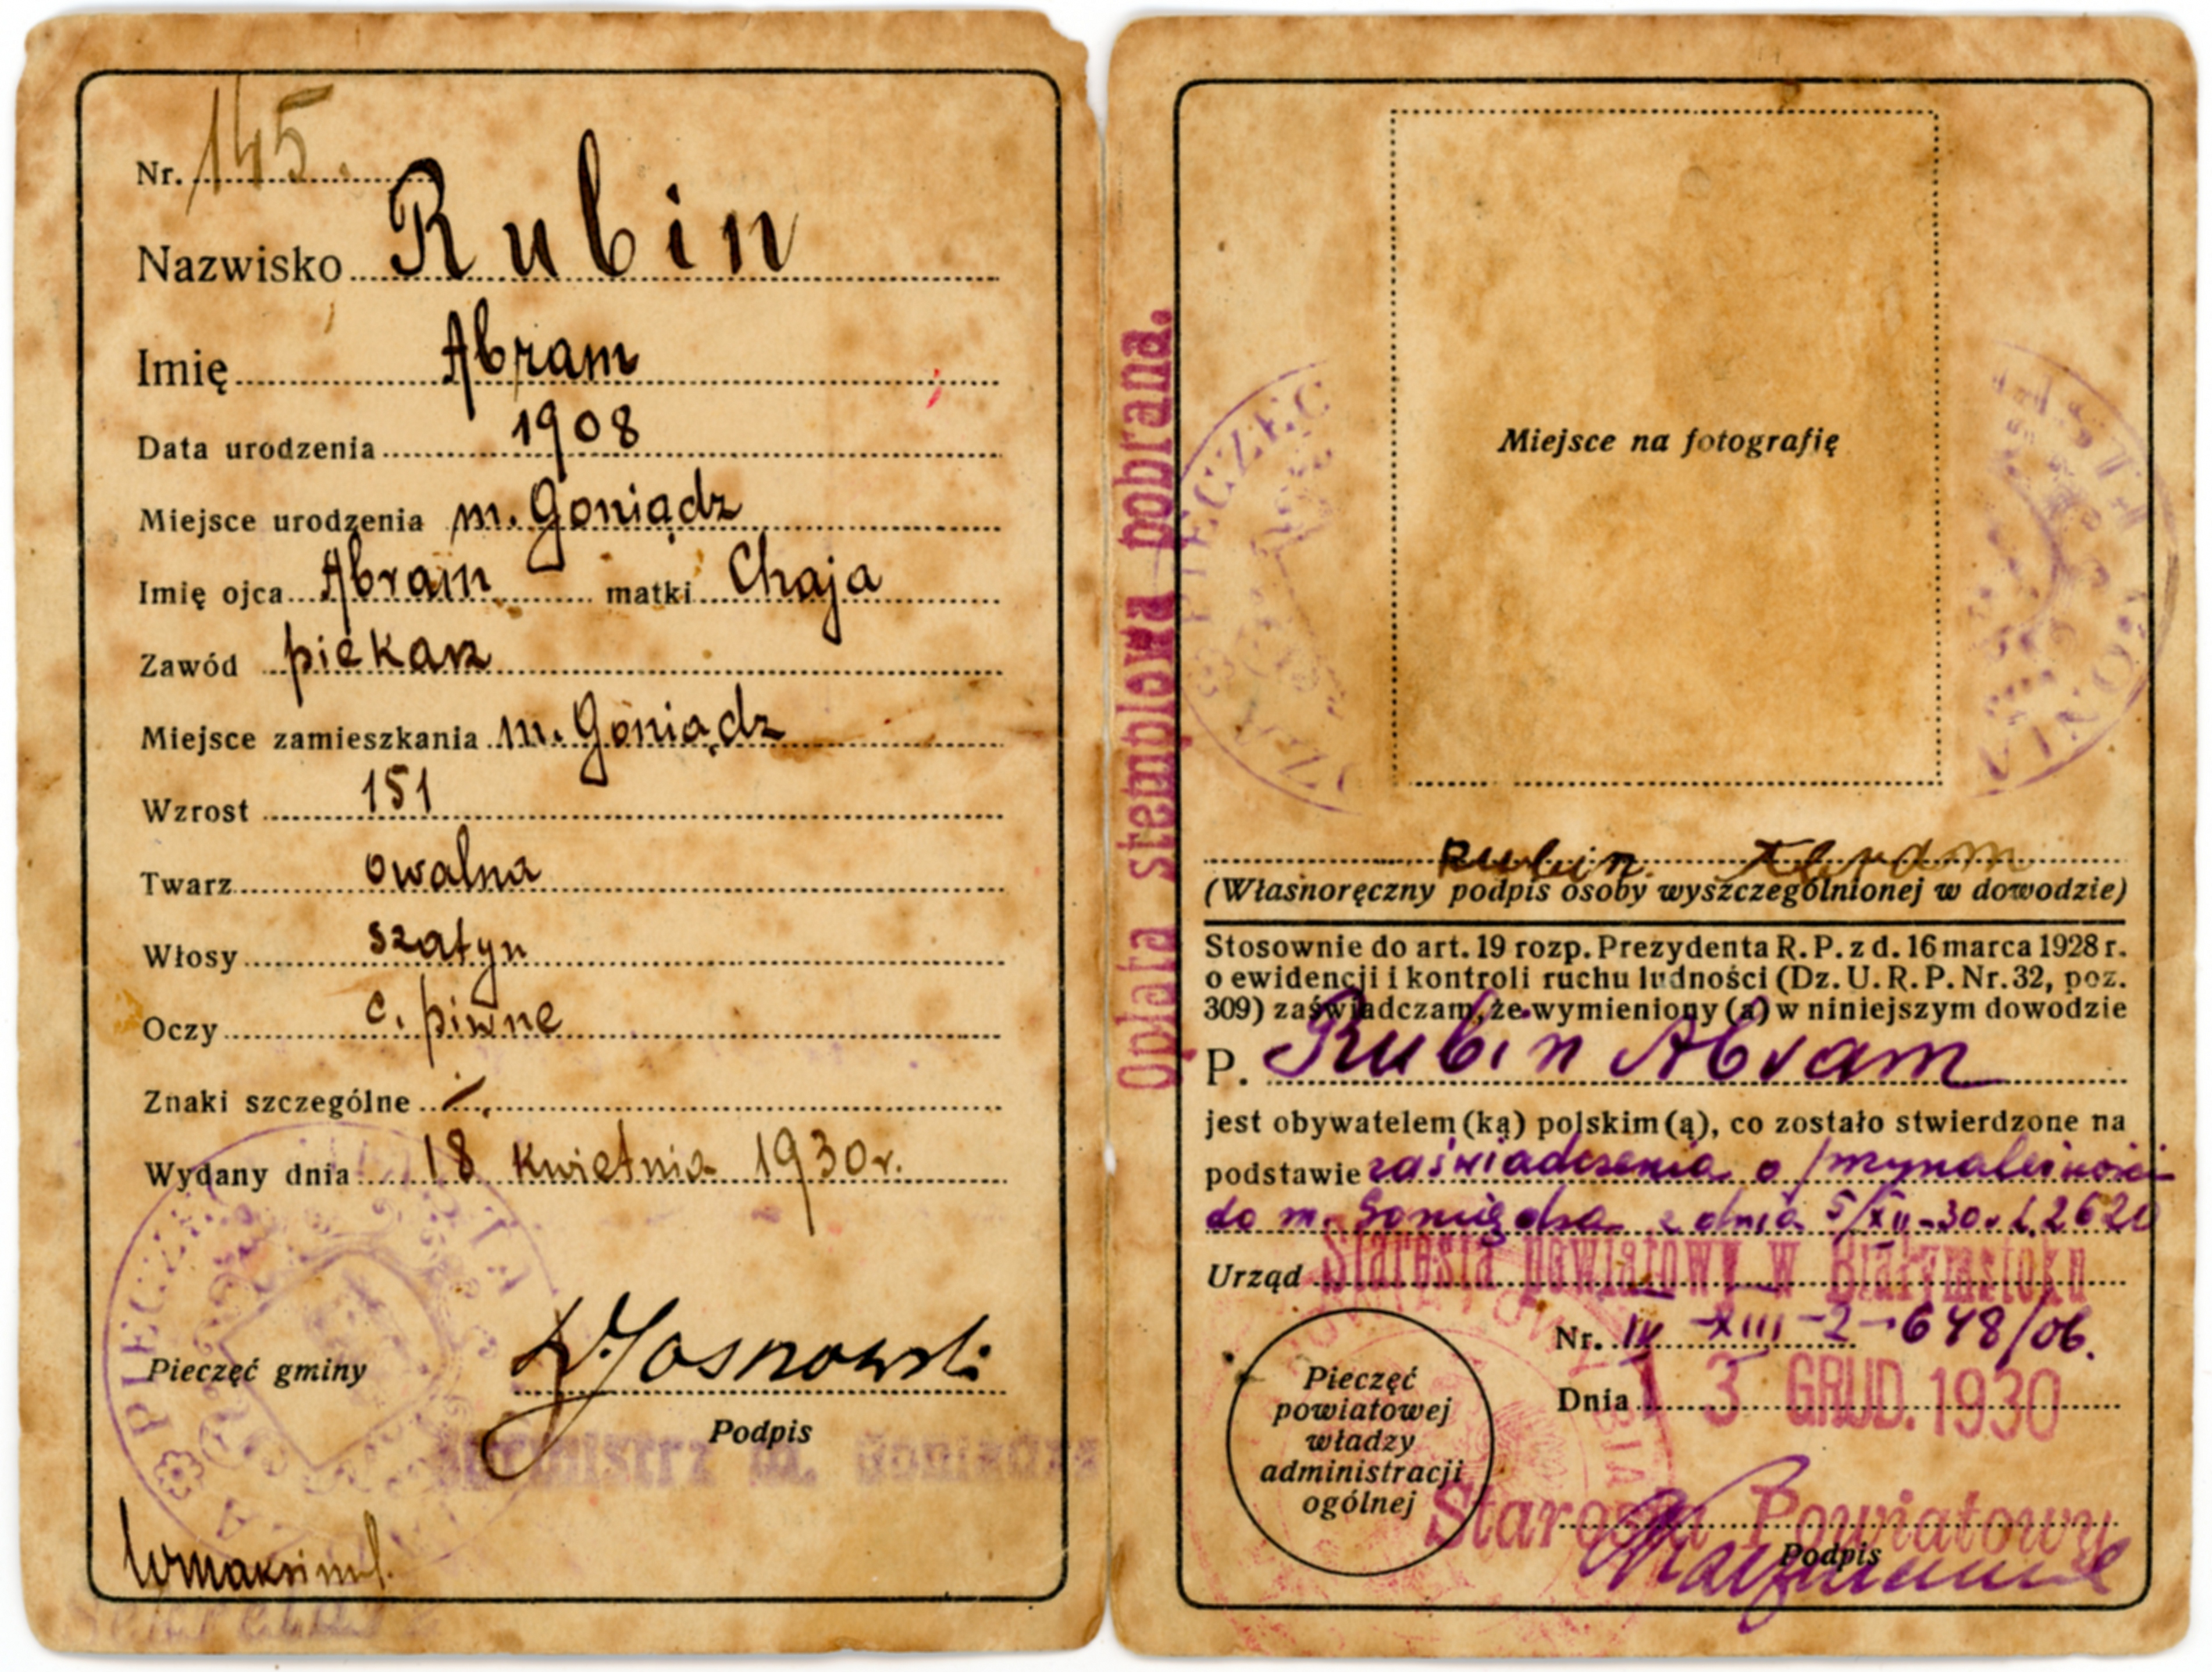 Nr. 145.
Nazwisko Rubin
Imię Abram
Data urodzenia 1908
Miejsce urodzenia m. Goniądz
Imię ojca Abram matki Chaja
Zawód piekarz
Miejsce zamieszkania m. Goniądz
Wzrost 151
Twarz owalna
Włosy szatyn
Oczy c. piwne
Znaki szczególne —.
Wydany dnia 18 kwietnia 1930 r.
Pieczęć gminy
Podpis
Burmistrz m. Goniądza
Sekretarz
Opłata stemplowa pobrana.
Miejsce na fotografię
Rubin Abram
(Własnoręczny podpis osoby wyszczególnionej w dowodzie)
Stosownie do art. 19 rozp. Prezydenta R. P. z d. 16 marca 1928 r.
o ewidencji i kontroli ruchu ludności (Dz. U. R. P. Nr. 32, poz.
309) zaświadczam, że wymieniony (a) w niniejszym dowodzie
P. Rubin Abram
jest obywatelem (ką) polskim (ą), co zostało stwierdzone na
podstawie zaświadczenia o przynależności
do m. Goniądza z dnia 5/XII-30 r. L. 2620
Urząd Starosta powiatowy w Białymstoku
Nr. IV-XIII-2-648/06.
Dnia 13 GRUD. 1930
Pieczęć
powiatowej
władzy
administracji
ogólnej
Starosta Powiatowy
Podpis